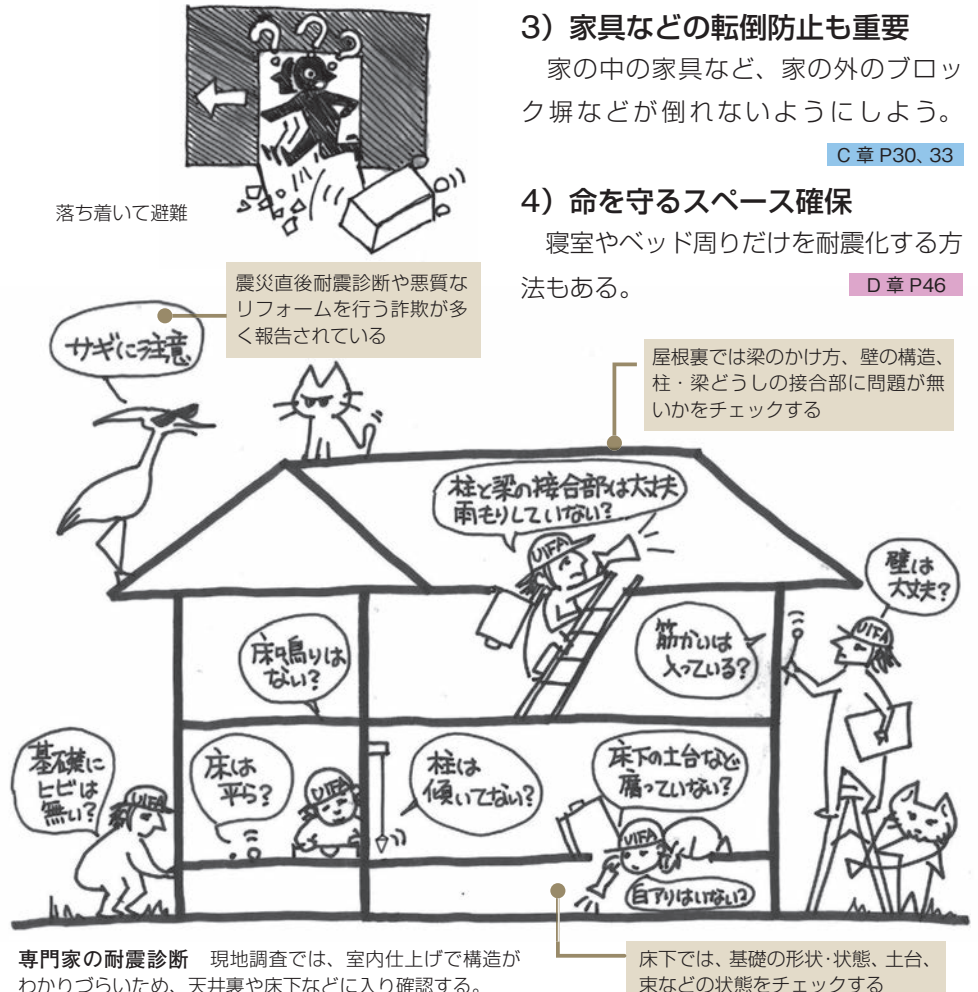 3）家具などの転倒防止も重要
家の中の家具など、家の外のブロッ
ク塀などが倒れないようにしよう。
C 章 P30、33
落ち着いて避難
4）命を守るスペース確保
寝室やベッド周りだけを耐震化する方
法もある。
D 章 P46
震災直後耐震診断や悪質な
リフォームを行う詐欺が多
く報告されている
サギに注意
屋根裏では梁のかけ方、壁の構造、
柱・梁どうしの接合部に問題が無
いかをチェックする
柱と梁の接合部は大丈夫
雨もりしていない?
UIFA
壁は
大丈夫?
UIFA
床鳴りは
ない?
筋かいは
入っている?
基礎に
ヒビは
無い?
UIFA
床は
平ら?
UIFA
柱は
傾いてない?
床下の土台など
腐っていない?
UIFA
白アリはいない?
専門家の耐震診断　現地調査では、室内仕上げで構造が
わかりづらいため、天井裏や床下などに入り確認する。
床下では、基礎の形状・状態、土台、
束などの状態をチェックする